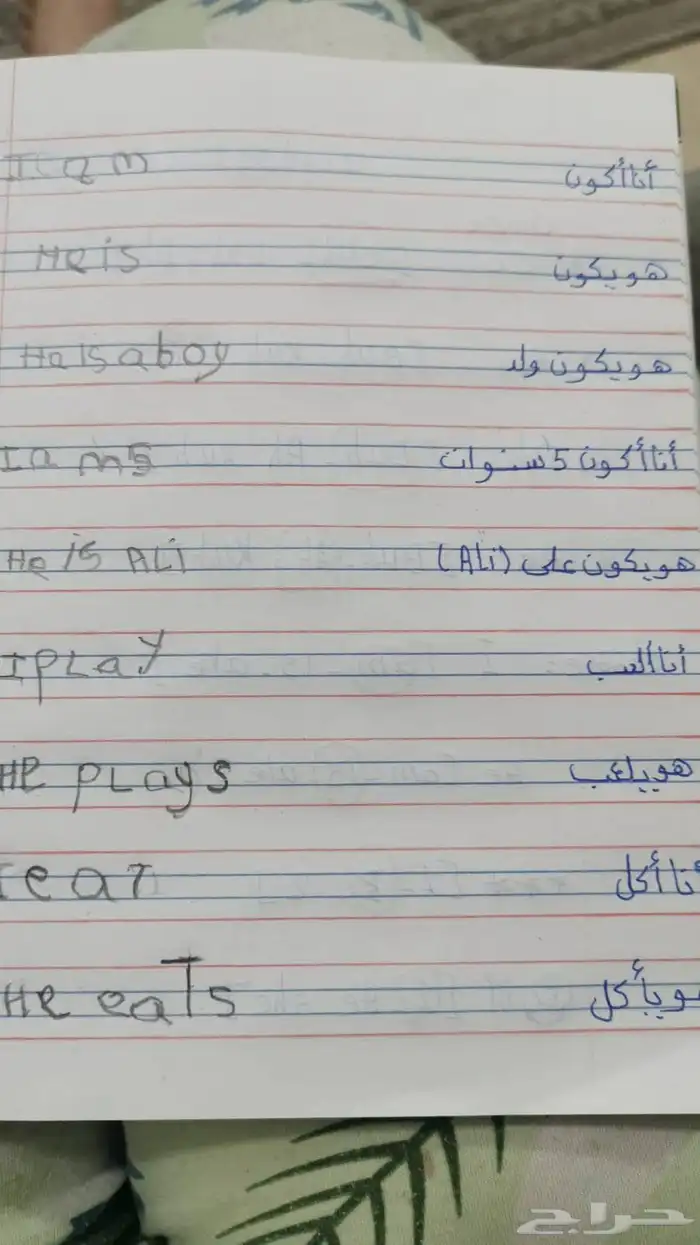 I am أنا أكون
He is هو يكون
He is a boy هو يكون ولد
I a m 5 أنا أكون 5 سنوات
He is ALi هو يكون على (Ali)
I pLay أنا ألعب
He pLays هو يلعب
I eaT أنا أكل
He eaTs هو يأكل
حراج